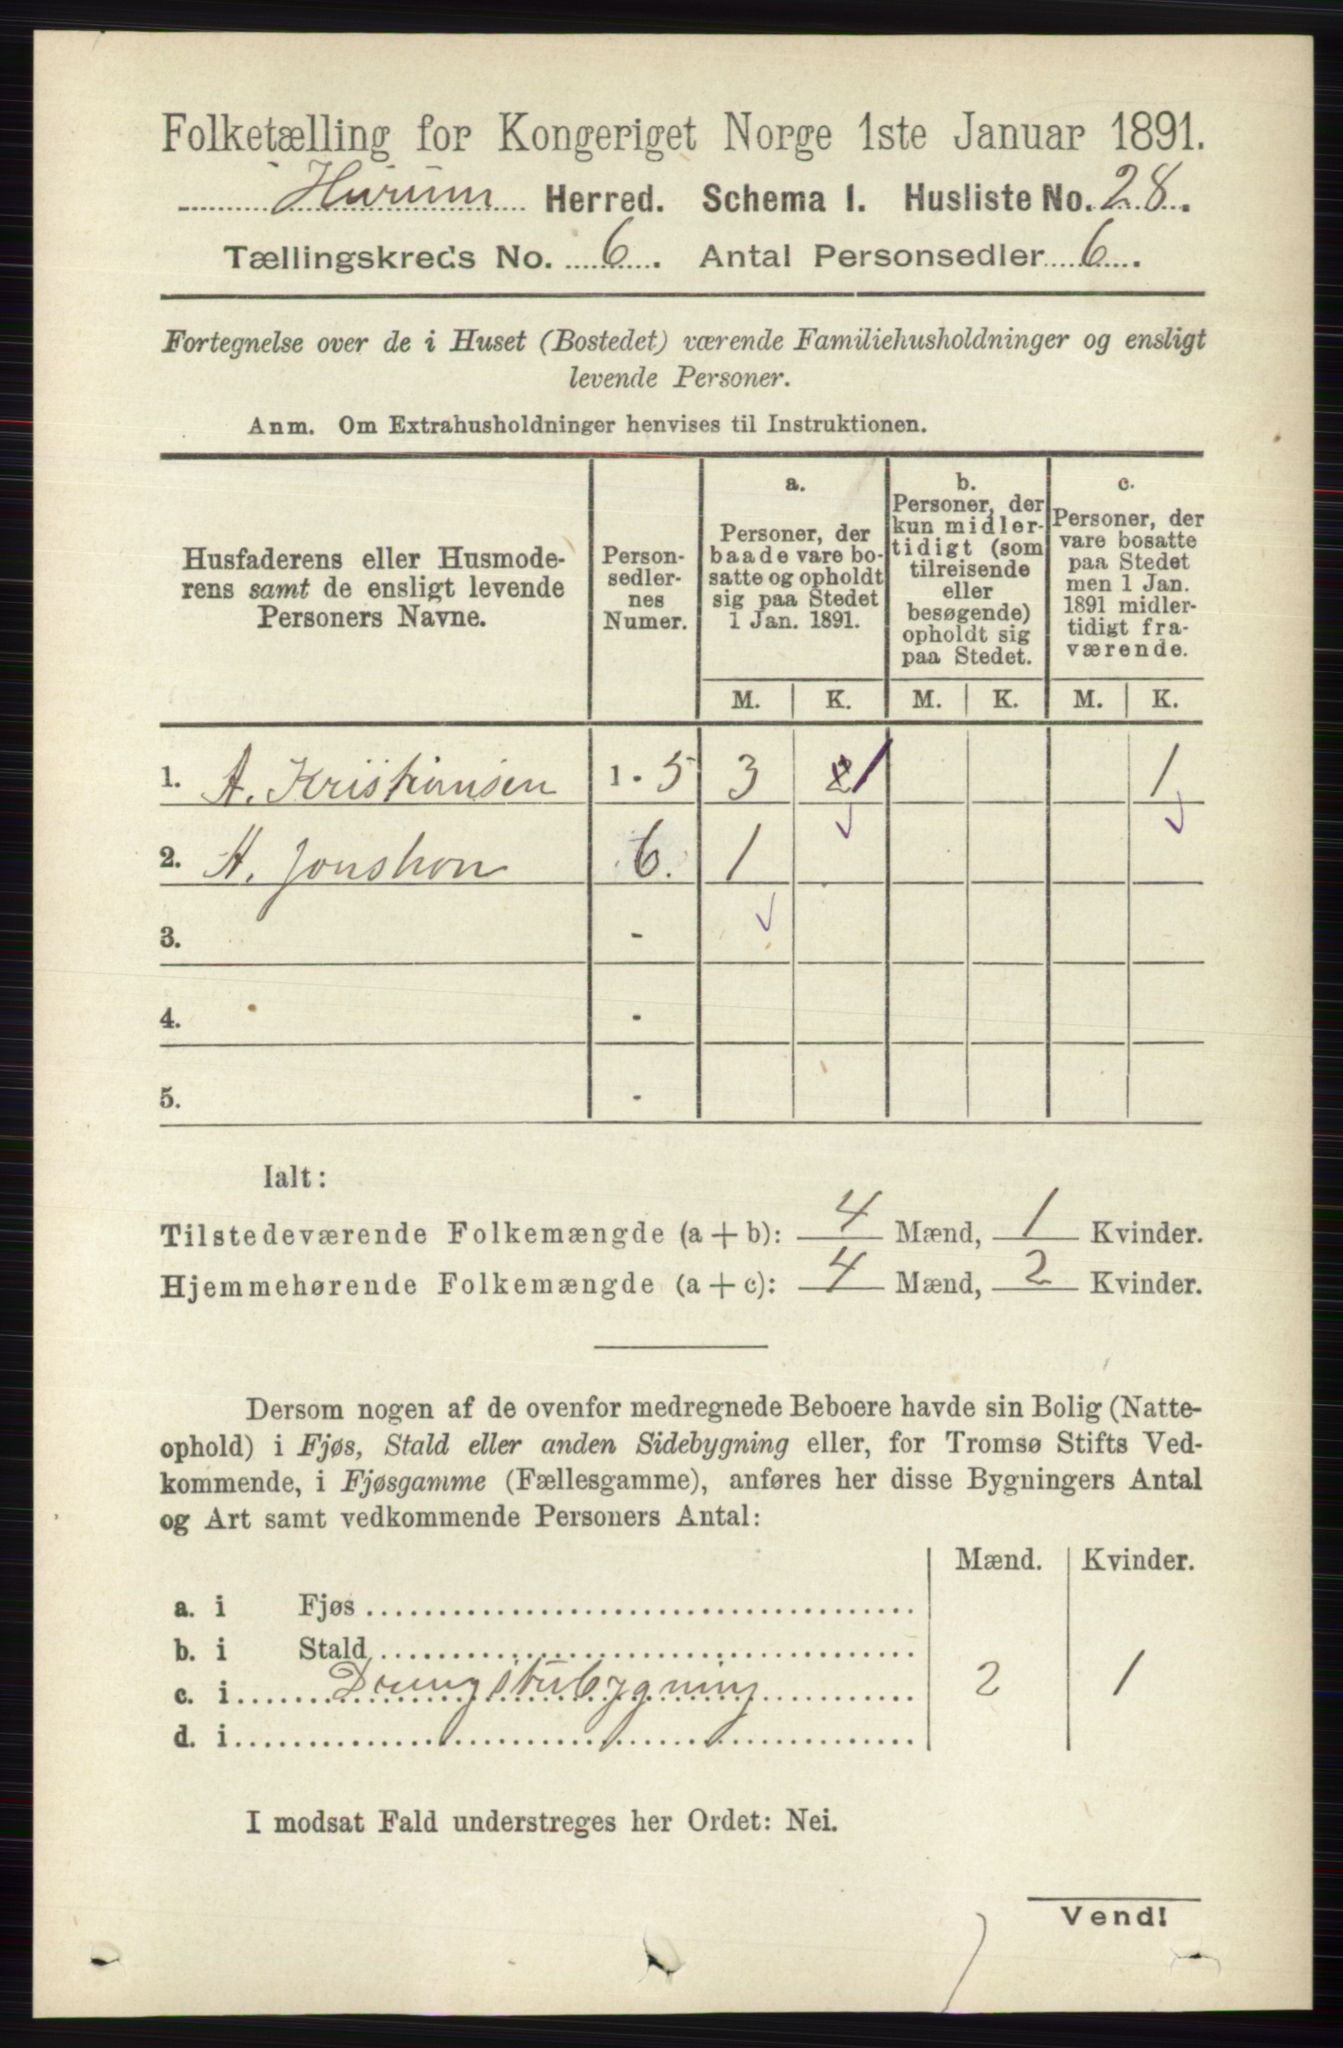 Folketælling for Kongeriget Norge 1ste Januar 1891.
Hurum Herred. Schema I. Husliste No. 28.
Tællingskreds No. 6. Antal Personsedler 6.
Fortegnelse over de i Huset (Bostedet) værende Familiehusholdninger og ensligt
levende Personer.
Anm. Om Extrahusholdninger henvises til Instruktionen.
Husfaderens eller Husmode-
rens samt de ensligt levende
Personers Navne.
Person-
sedler-
nes
Numer.
a.
Personer, der
baade vare bo-
satte og opholdt
sig paa Stedet
1 Jan. 1891.
b.
Personer, der
kun midler-
tidigt (som
tilreisende
eller
besøgende)
opholdt sig
paa Stedet.
c.
Personer, der
vare bosatte
paa Stedet
men 1 Jan.
1891 midler-
tidigt fra-
værende.
M. K. M. K. M. K.
1. A. Kristiansen 1 - 5 3 1 1
2. A. Jonshon 6. 1
3. -
4. -
5. -
Ialt:
Tilstedeværende Folkemængde (a + b): 4 Mænd, 1 Kvinder.
Hjemmehørende Folkemængde (a + c): 4 Mænd, 2 Kvinder.
Dersom nogen af de ovenfor medregnede Beboere havde sin Bolig (Natte-
ophold) i Fjøs, Stald eller anden Sidebygning eller, for Tromsø Stifts Ved-
kommende, i Fjøsgamme (Fællesgamme), anføres her disse Bygningers Antal
og Art samt vedkommende Personers Antal:
Mænd. Kvinder.
a. i Fjøs
b. i Stald
c. i Drengstubygning 2 1
d. i
I modsat Fald understreges her Ordet: Nei.
Vend!